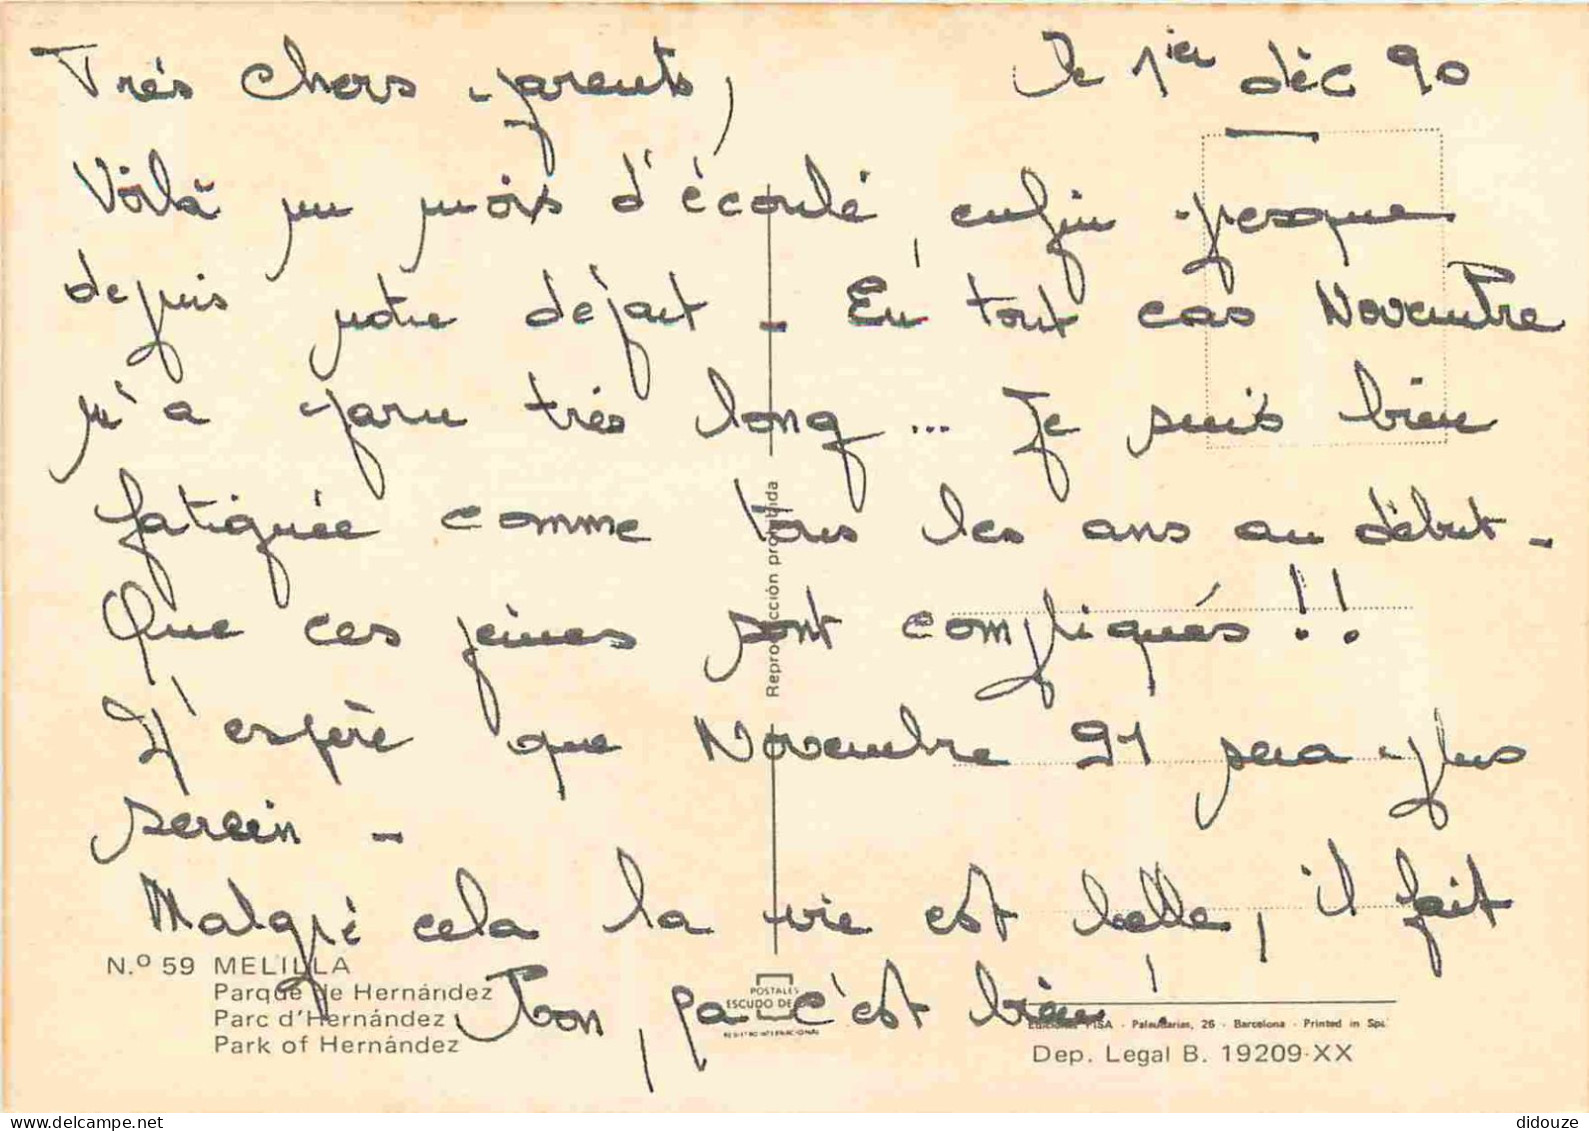 Très chers parents,
le 1ier déc 90
Voilà un mois d'écoulé, enfin presque
depuis notre départ - En tout cas Novembre
m'a paru très long ... Je suis bien
fatiguée comme tous les ans au début -
Que ces jeunes sont compliqués !!
J'espère que Novembre 91 sera plus
serein -
Malgré cela la vie est belle, il fait
bon, ça c'est bien !
Reproducción prohibida
N.º 59 MELILLA
Parque de Hernández
Parc d'Hernández
Park of Hernández
POSTALES
ESCUDO DE
REGISTRO INTERNACIONAL
FISA - Palaudarias, 26 - Barcelona - Printed in Spain
Dep. Legal B. 19209-XX
delcampe.net
didouze